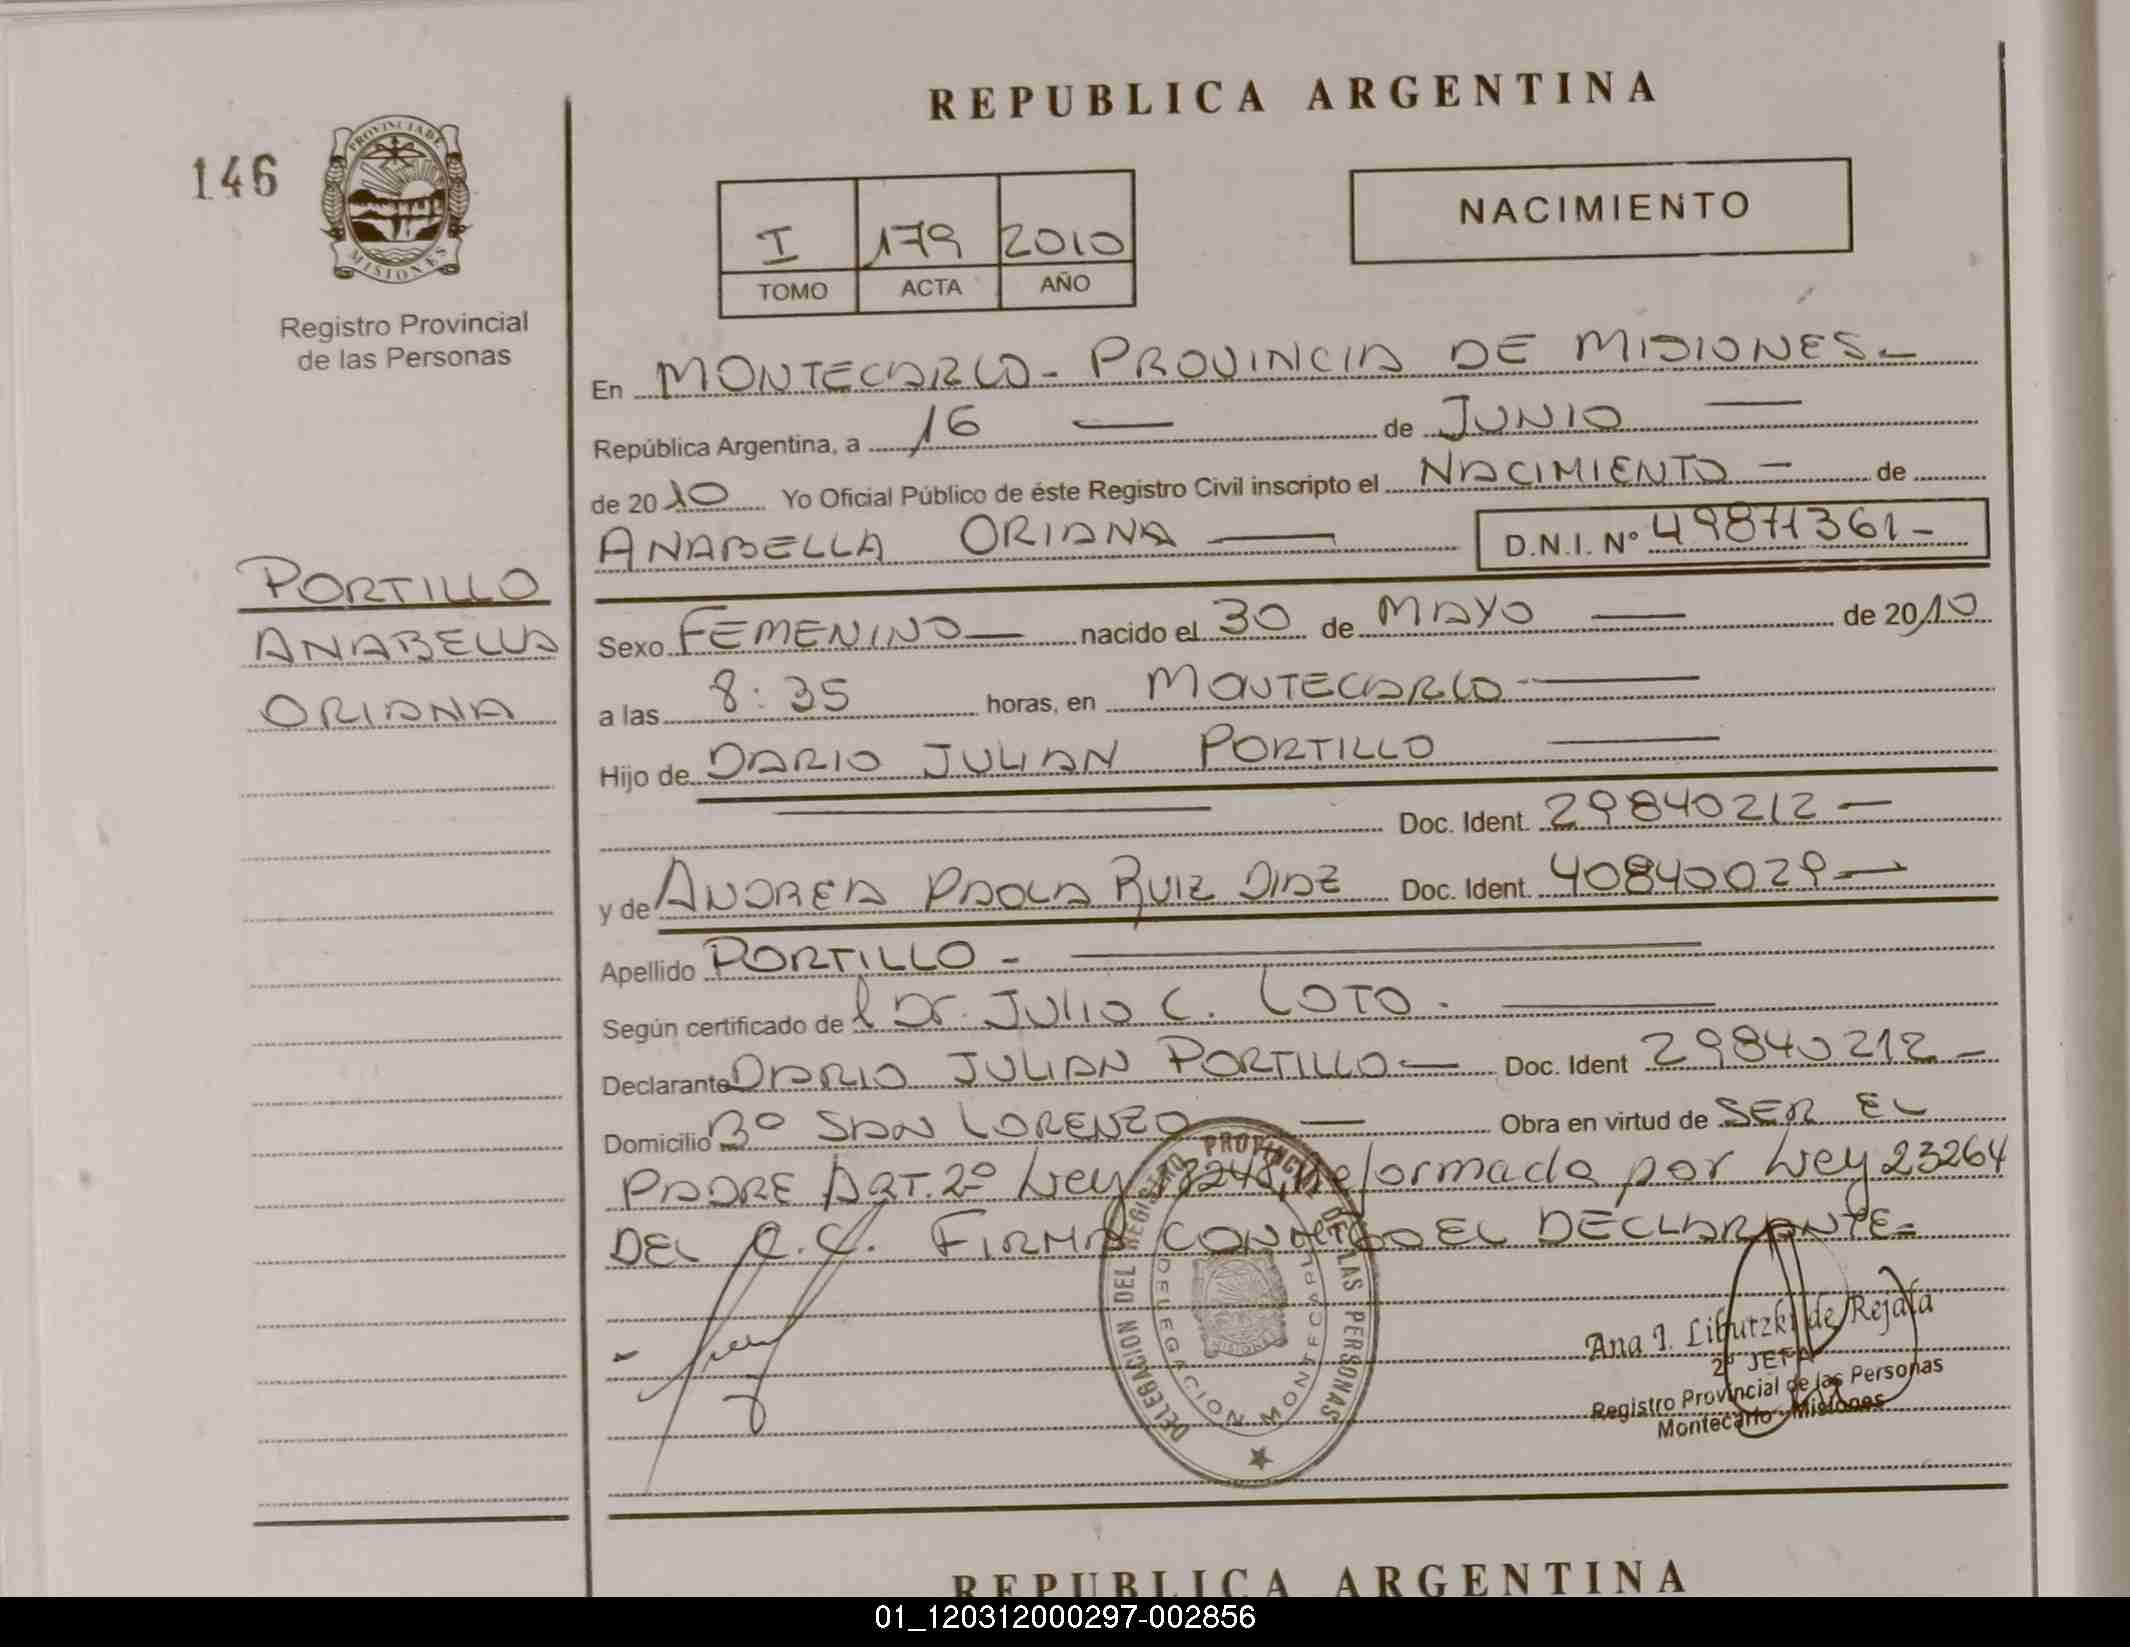 REPUBLICA ARGENTINA
146
PROVINCIA DE
MISIONES
Registro Provincial
de las Personas
NACIMIENTO
I 179 2010
TOMO ACTA AÑO
En MONTECARLO - PROVINCIA DE MISIONES -
República Argentina, a 16 — de JUNIO —
de 2010 Yo Oficial Público de éste Registro Civil inscripto el NACIMIENTO - de
ANABELLA ORIANA — D.N.I. Nº 49871361 -
PORTILLO
ANABELLA
ORIANA
Sexo FEMENINO — nacido el 30 de MAYO — de 2010
a las 8:35 horas, en MONTECARLO —
Hijo de DARIO JULIAN PORTILLO —
— Doc. Ident. 29840212 —
y de ANDREA PAOLA RUIZ DIAZ Doc. Ident. 40840029 —
Apellido PORTILLO - —
Según certificado de l Dr. JULIO C. LOTO. —
Declarante DARIO JULIAN PORTILLO — Doc. Ident 29840212 -
Domicilio Bº SAN LORENZO — Obra en virtud de SER EL
PADRE ART. 2º Ley 18248, reformada por Ley 23264
DEL C.C. FIRMA CONMIGO EL DECLARANTE =
DELEGACION DEL REGISTRO PROVINCIAL DE LAS PERSONAS
DELEGACION MONTECARLO
MISIONES
Ana I. Libutzki de Rejala
2º JEFA
Registro Provincial de las Personas
Montecarlo - Misiones
REPUBLICA ARGENTINA
01_120312000297-002856